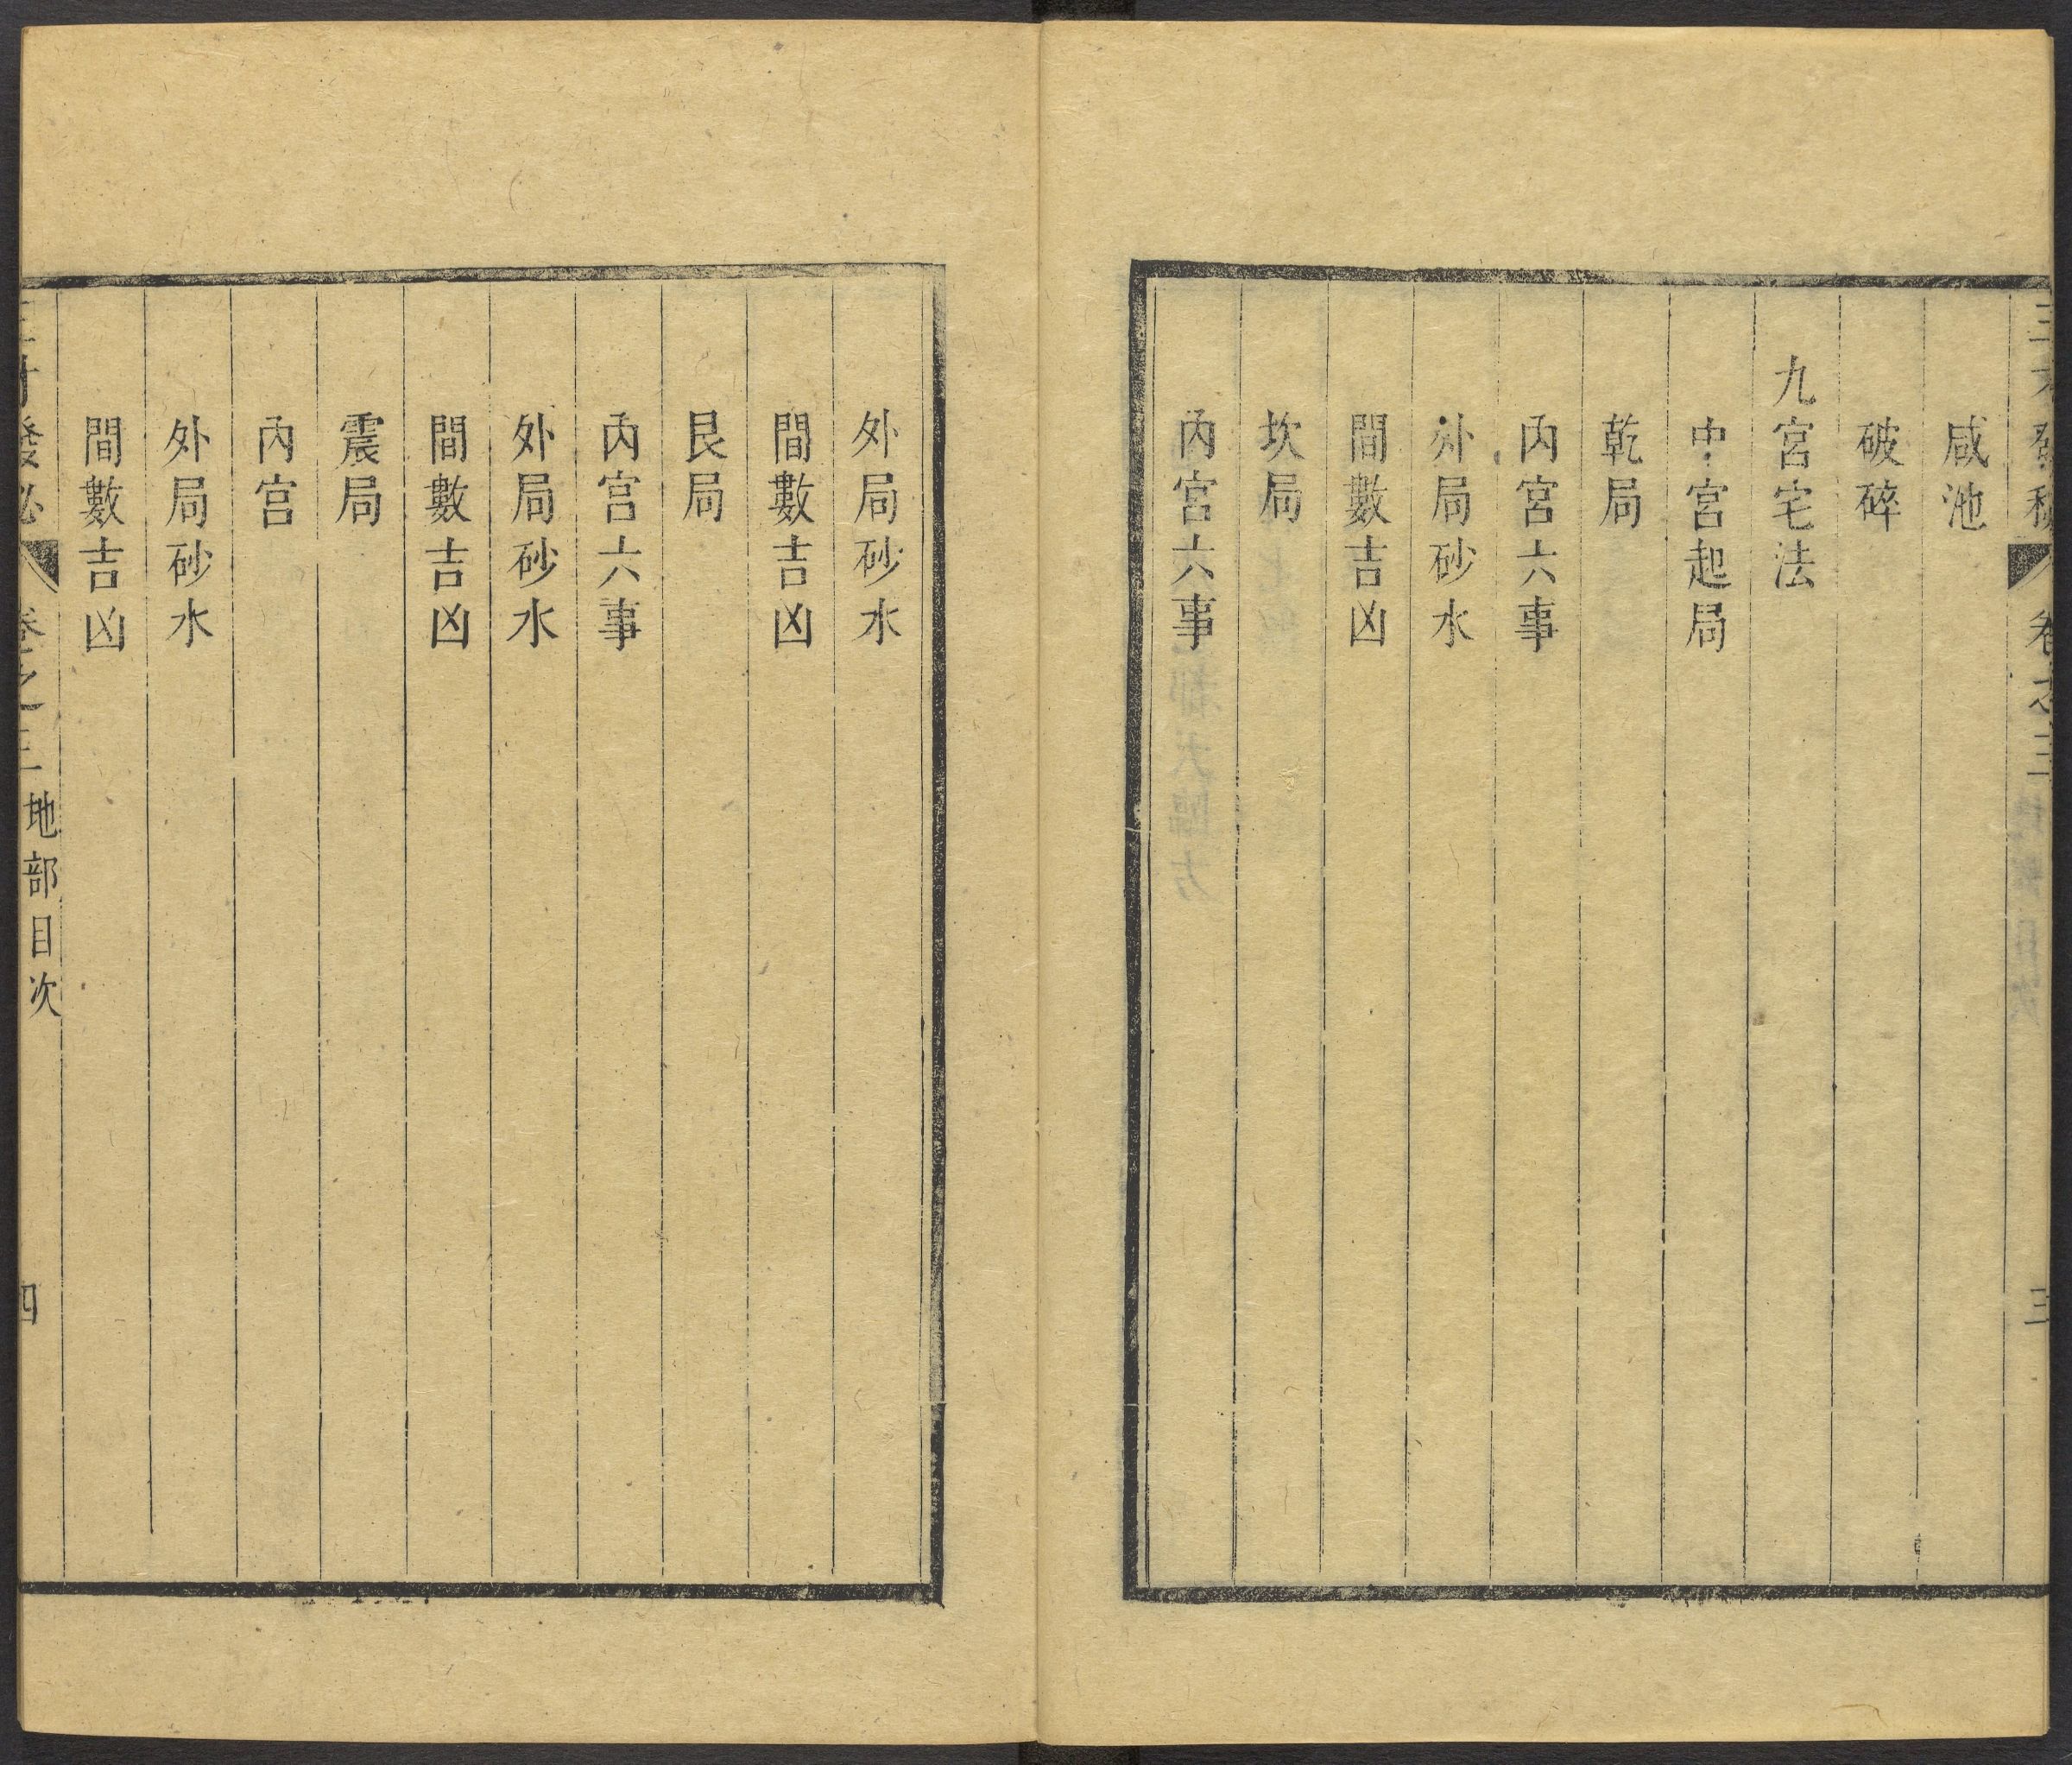 三才發秘 卷之三 三
咸池
破碎
九宮宅法
中宮起局
乾局
內宮六事
外局砂水
間數吉凶
坎局
內宮六事
外局砂水
間數吉凶
艮局
內宮六事
外局砂水
間數吉凶
震局
內宮
外局砂水
間數吉凶
三才發秘 卷之三 地部目次 四